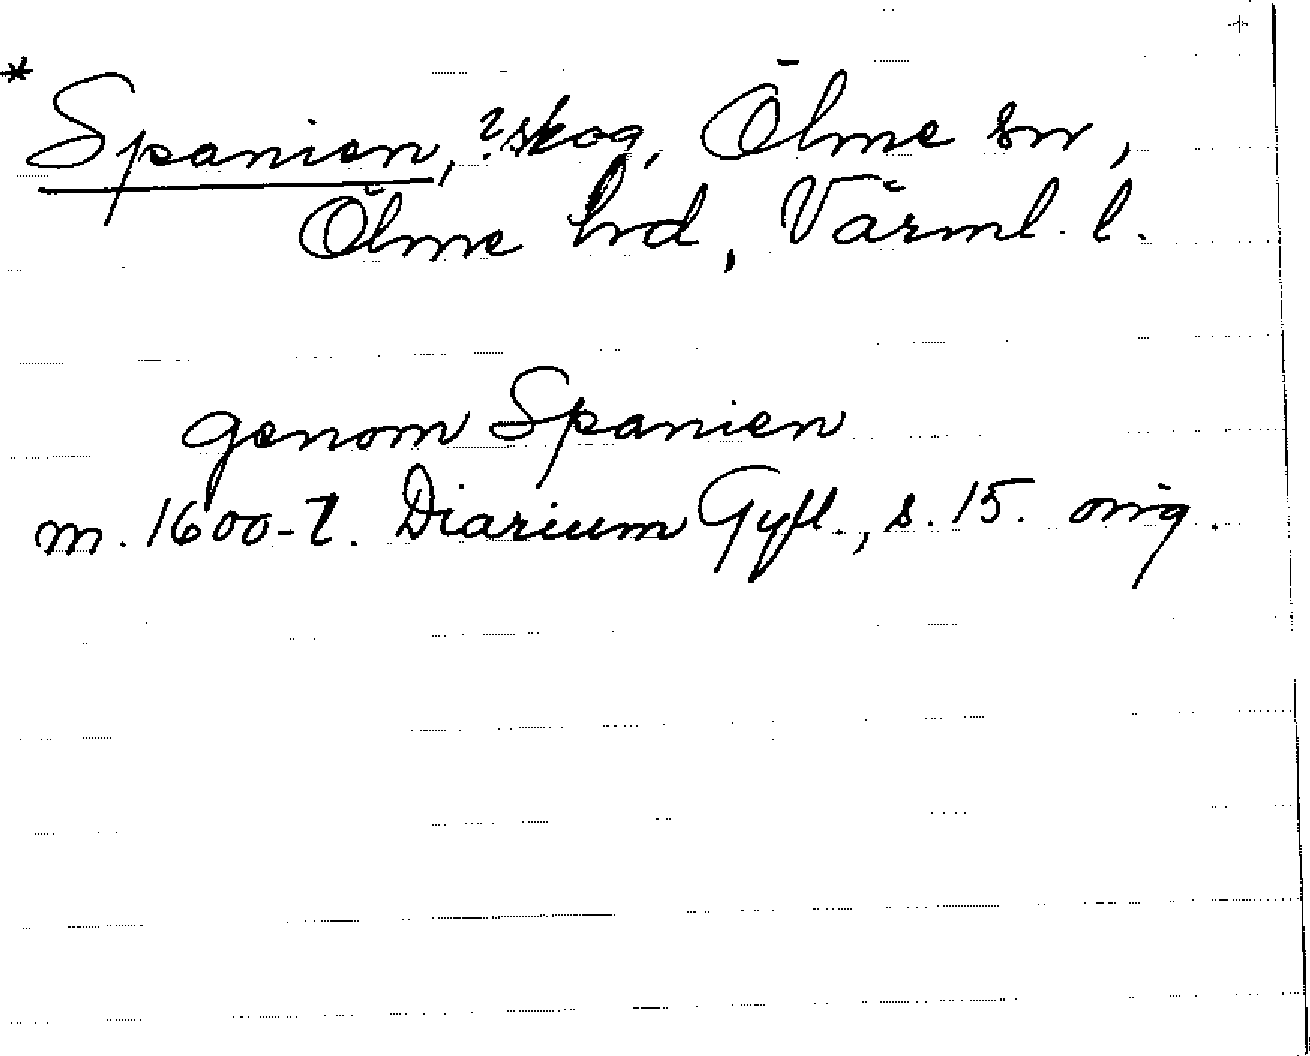 * Spanien, ?skog, Ölme sn,
Ölme hd, Värml. l.
genom Spanien
m. 1600-t. Diarium Gyll., s. 15. orig.